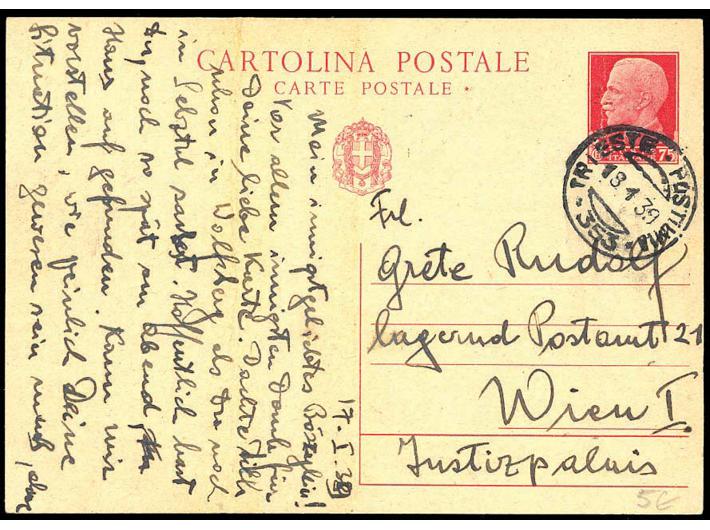 CARTOLINA POSTALE
CARTE POSTALE
75
TRIESTE POSTI
18·1·39
353
17.I.39
Mein innigstgeliebtes
Vor allem innigsten Dank für
Deine liebe Karte. Dachte
schon in Wolfsberg als Du noch
in sahst. Hoffentlich hat
noch so spät am Abend
Hans auf gefunden. Kann mir
vorstellen, wie peinlich Deine
Situation gewesen sein muß, aber
Frl.
Grete Rudolf
lagernd Postamt 21
Wien I.
Justizpalais
5€